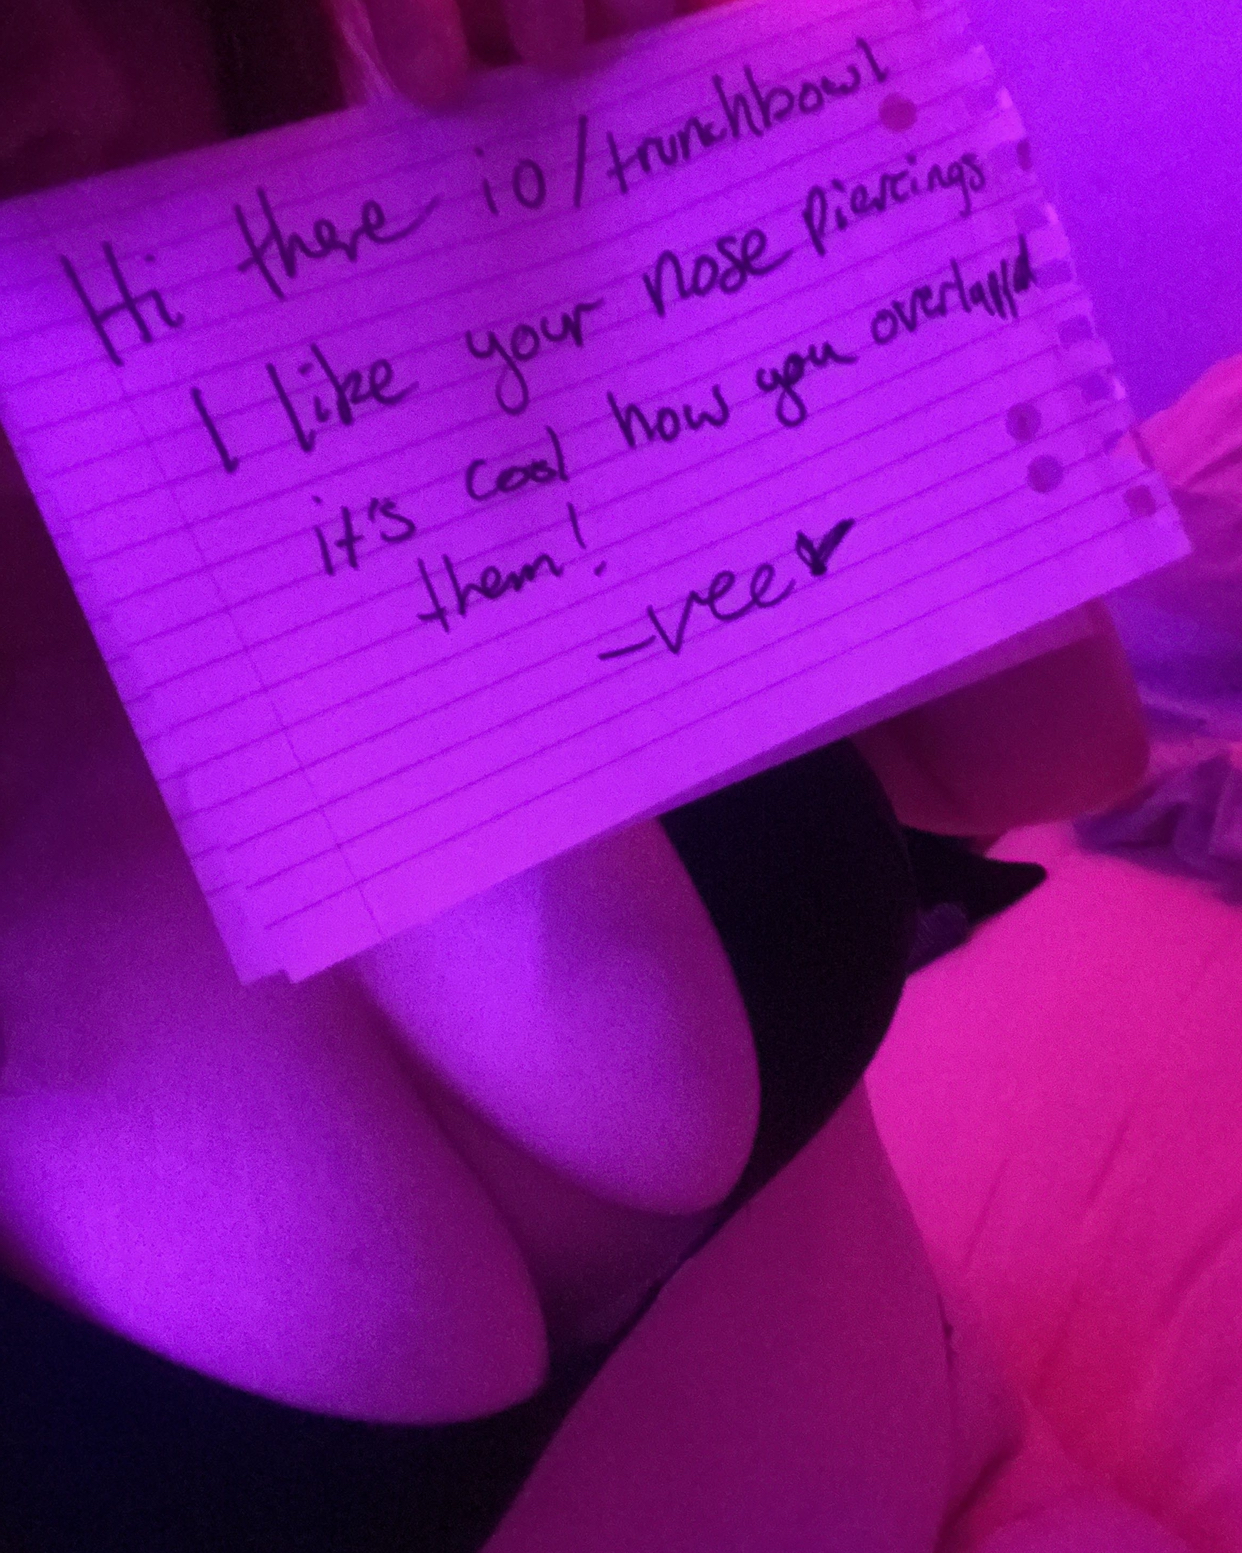 Hi there io/trunchbowl
I like your nose piercings
it's cool how you overlapp'd
them!
—vee♥